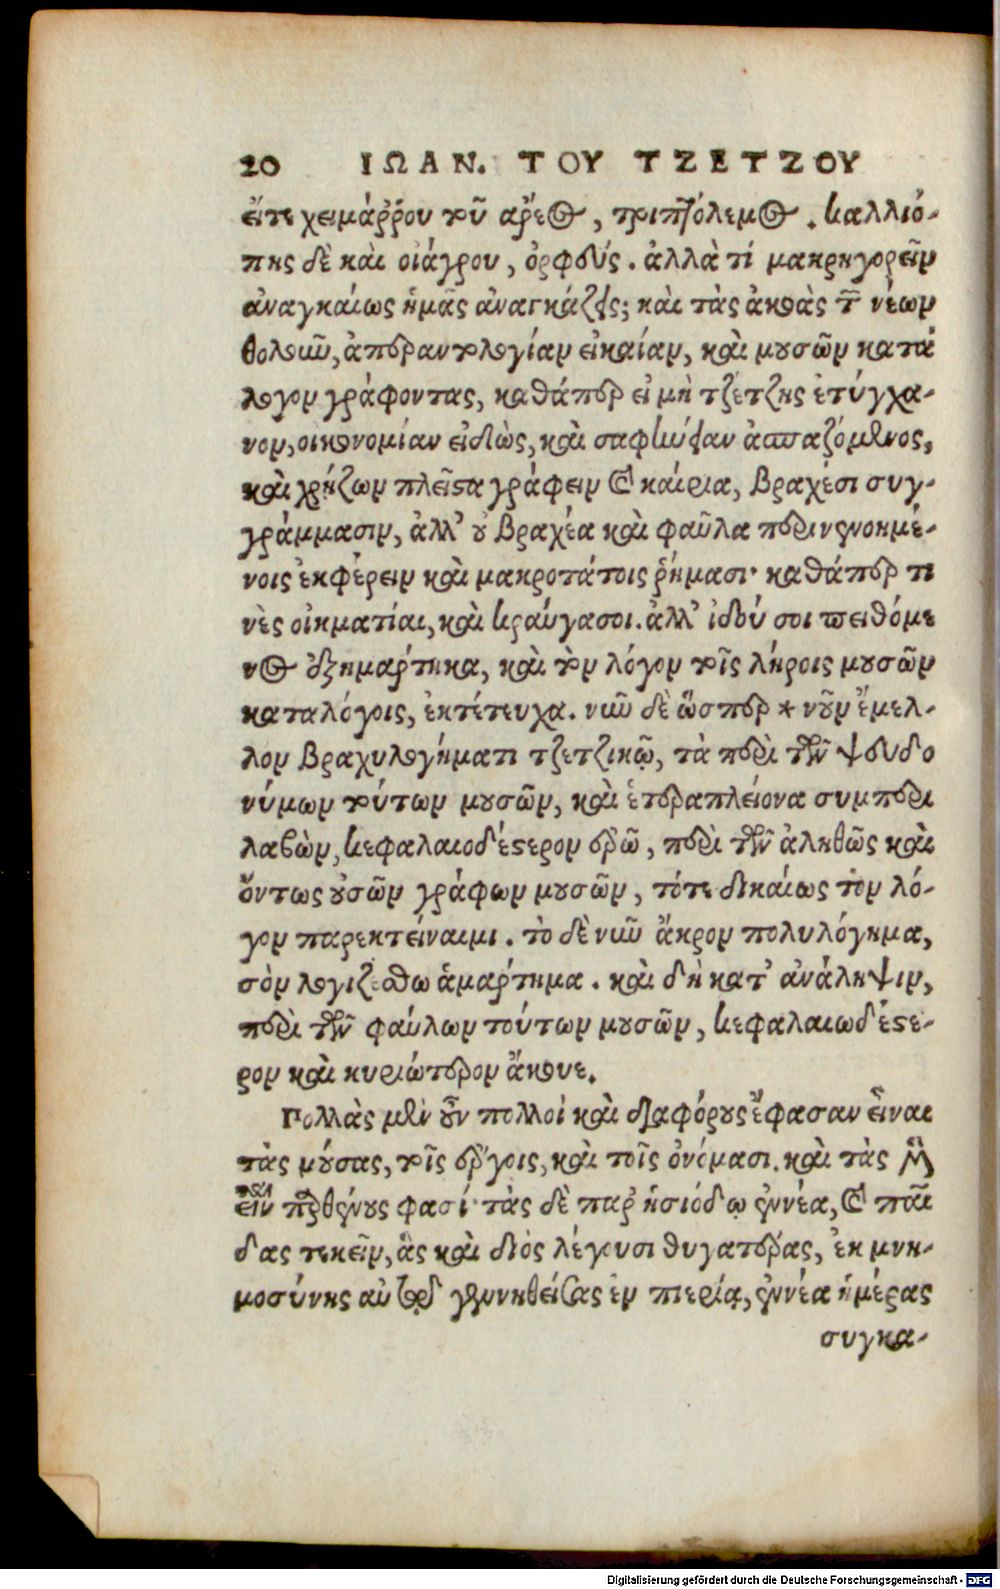 20 ΙΩΑΝ. ΤΟΥ ΤΖΕΤΖΟΥ
εἴτε χειμάῤῥου τοῦ ἄρεος, τριπτόλεμος. καλλιό-
πης δὲ καὶ οἰάγρου, ὀρφεύς. ἀλλὰ τί μακρηγορεῖν
ἀναγκαίως ἡμᾶς ἀναγκάζεις; καὶ τὰς ἀκοὰς τῶν νέων
θολοῦν, ἀπεραντολογίαν εἰκαίαν, καὶ μουσῶν κατά
λογον γράφοντας, καθάπερ εἰ μὴ τζέτζης ἐτύγχα-
νον, οἰκονομίαν εἰδὼς, καὶ σαφήνειαν ἀσπαζόμενος,
καὶ χρῄζων πλεῖστα γράφειν καὶ καίρια, βραχέσι συγ-
γράμμασιν, ἀλλ' οὐ βραχέα καὶ φαῦλα περινενοημέ-
νοις ἐκφέρειν καὶ μακροτάτοις ῥήμασι· καθάπερ τι
νὲς οἰηματίαι, καὶ κραύγασοι. ἀλλ' ἰδού σοι πειθόμε
νος ἐξημάρτηκα, καὶ τὸν λόγον τοῖς λήροις μουσῶν
καταλόγοις, ἐκτέτευχα. νῦν δὲ ὥσπερ * νοῦν ἔμελ-
λον βραχυλογήματι τζετζικῷ, τὰ περὶ τῶν ψευδο
νύμων τούτων μουσῶν, καὶ ἑτεραπλείονα συμπερι
λαβὼν, κεφαλαιοδέστερον ἐρῶ, περὶ τῶν ἀληθῶς καὶ
ὄντως οὐσῶν γράφων μουσῶν, τότε δικαίως τὸν λό-
γον παρεκτείναιμι. τὸ δὲ νῦν ἄκρον πολυλόγημα,
σὸν λογιζέσθω ἁμάρτημα. καὶ δὴ κατ' ἀνάληψιν,
περὶ τῶν φαύλων τούτων μουσῶν, κεφαλαιωδέστε-
ρον καὶ κυριώτερον ἄκουε.
Πολλὰς μὲν οὖν πολλοὶ καὶ διαφόρους ἔφασαν εἶναι
τὰς μούσας, τοῖς ἔργοις, καὶ τοῖς ὀνόμασι. καὶ τὰς μὲν
εἶναι παρθένους φασί· τὰς δὲ παρ' ἡσιόδῳ ἐννέα, καὶ παῖ
δας τεκεῖν, ἃς καὶ διὸς λέγουσι θυγατέρας, ἐκ μνη-
μοσύνης αὐτῷ γεννηθείσας ἐν πιερίᾳ, ἐννέα ἡμέρας
συγκα-
Digitalisierung gefördert durch die Deutsche Forschungsgemeinschaft - DFG